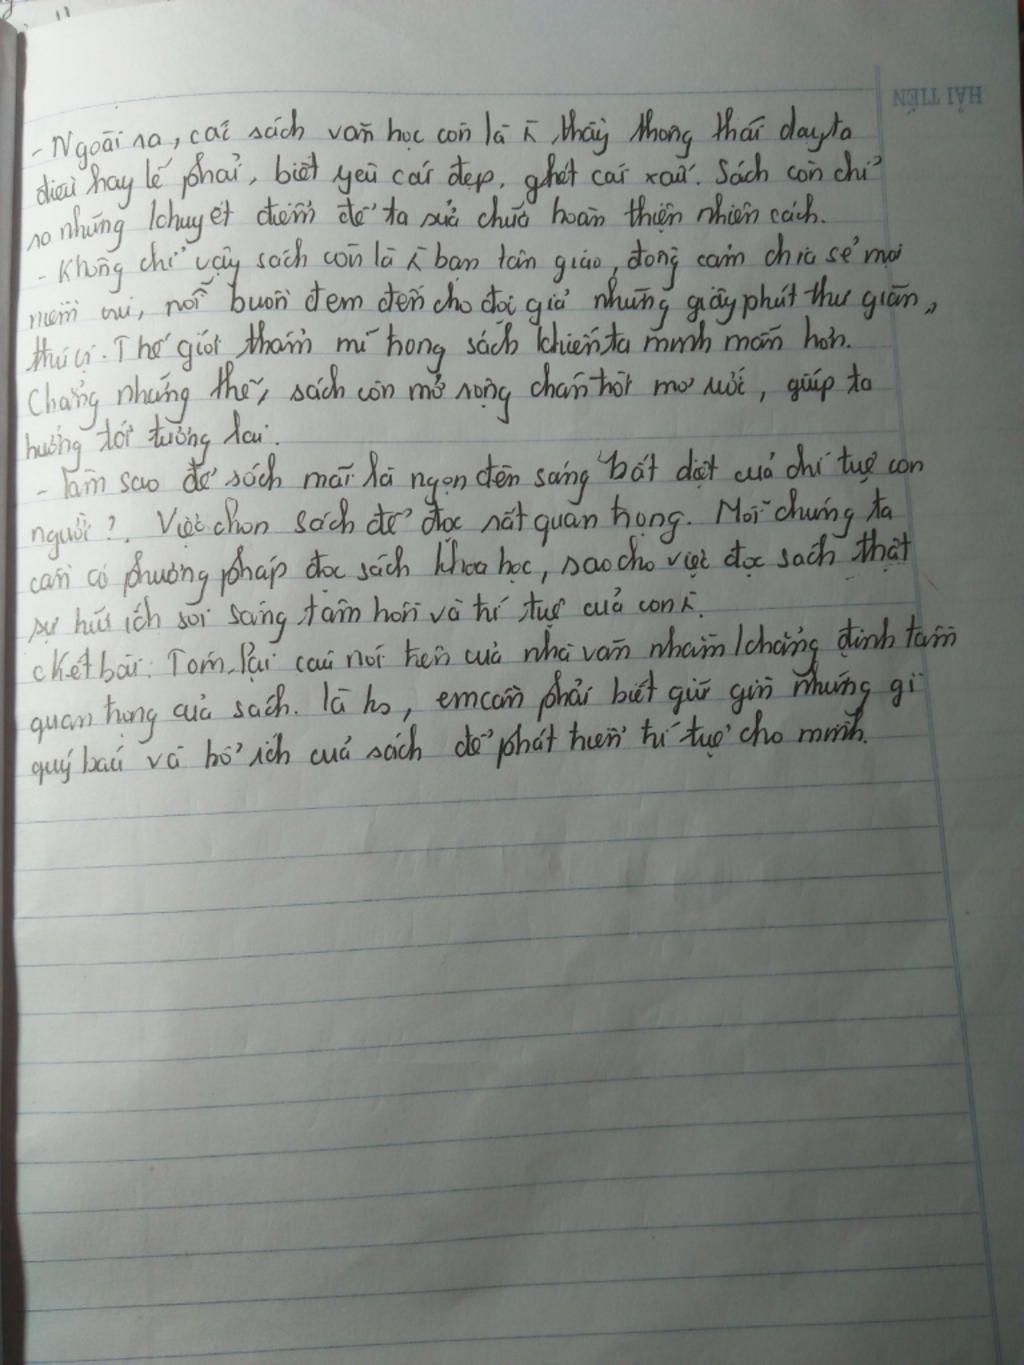 HẢI TIẾN
- Ngoài ra, các sách văn học còn là 1 thầy thông thái dạy ta
điều hay lẽ phải, biết yêu cái đẹp, ghét cái xấu. Sách còn chỉ
ra những khuyết điểm để ta sửa chữa hoàn thiện nhiên cách.
- Không chỉ vậy sách còn là 1 bạn tân giáo, đồng cảm chia sẻ mọi
niềm vui, nỗi buồn đem đến cho đọi giả những giây phút thư giãn,
thú vị. Thế giới thẩm mĩ trong sách khiến ta minh mẫn hơn.
Chẳng những thế, sách còn mở rộng chân trời mơ ước, giúp ta
hướng tới tương lai.
- Làm sao để sách mãi là ngọn đèn sáng bất diệt của chí tuệ con
người?. Việc chọn sách để đọc rất quan trọng. Mỗi chúng ta
cần có phương pháp đọc sách khoa học, sao cho việc đọc sách thật
sự hữu ích soi sáng tâm hồn và trí tuệ của con 1.
c Kết bài: Tóm lại câu nói trên của nhà văn nhằm khẳng định tầm
quan trọng của sách. Là hs, em cần phải biết giữ gìn những gì
quý báu và bổ ích của sách để phát triển trí tuệ cho mình.